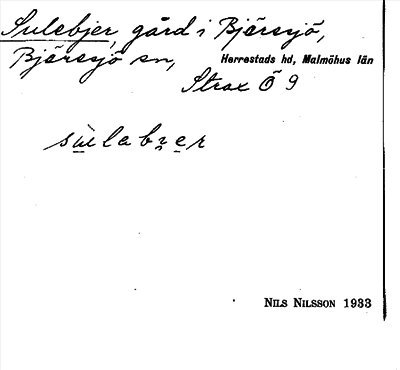 Sulebjer, gård i Bjäresjö,
Bjäresjö sn, Herrestads hd, Malmöhus län
Strax Ö 9
sùlabr̥er
NILS NILSSON 1933